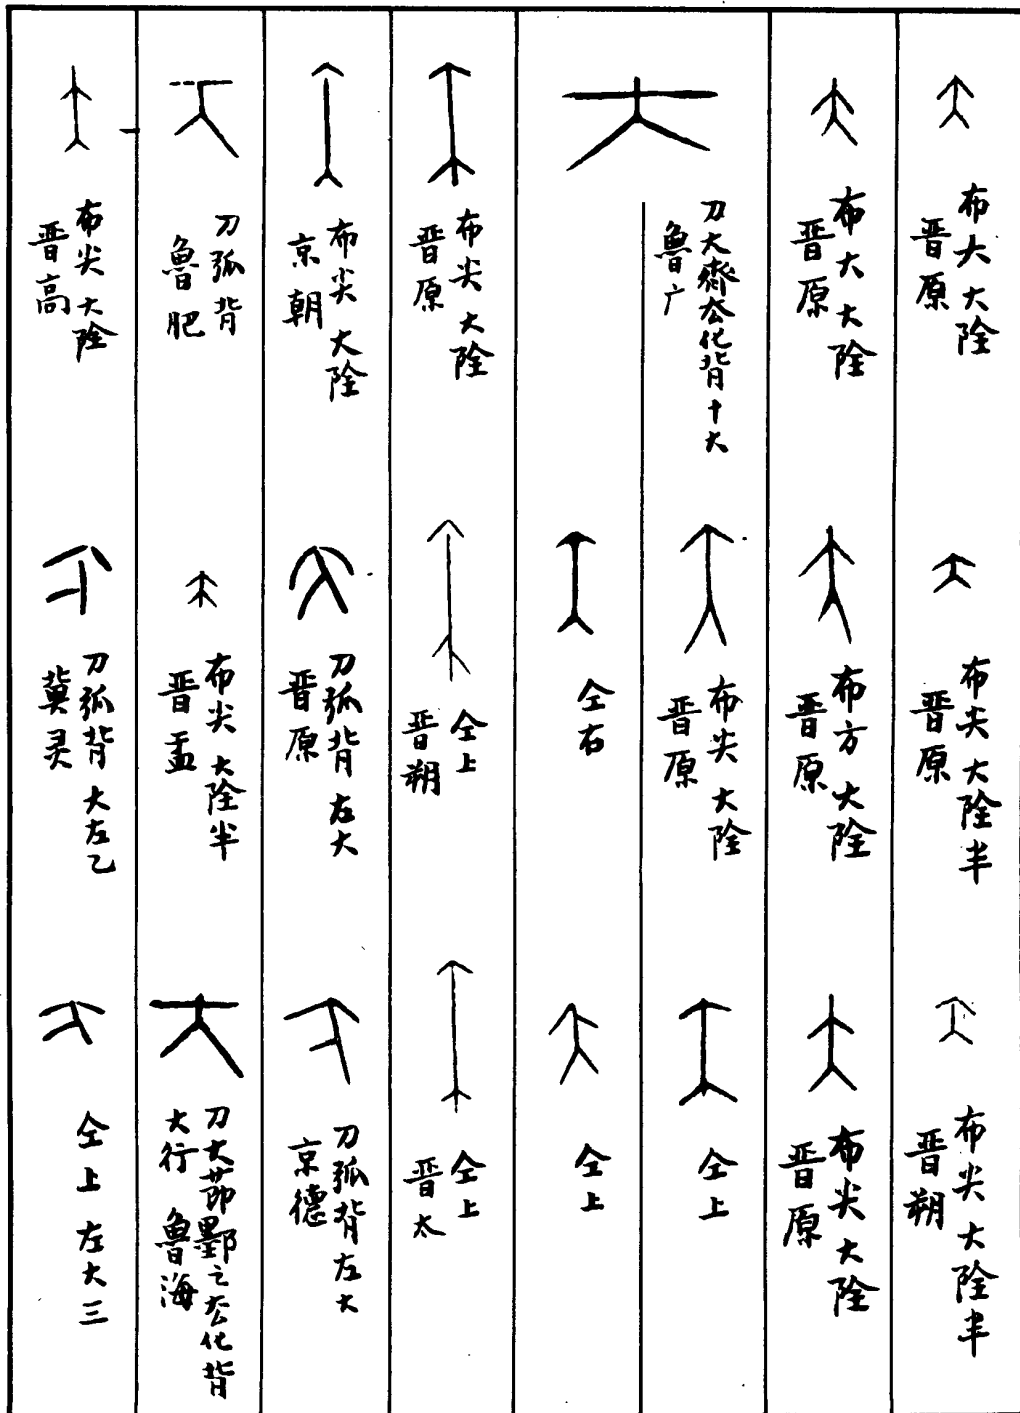 布大 大陰
晋原
布尖 大陰半
晋原
布尖 大陰半
晋朔
布大 大陰
晋原
布方 大陰
晋原
布尖 大陰
晋原
刀大齊厺化背十大
魯广
布尖 大陰
晋原
仝上
仝右
仝上
布尖 大陰
晋原
仝上
晋朔
仝上
晋太
布尖 大陰
京朝
刀弧背 左大
晋原
刀弧背左大
京德
刀弧背
魯肥
布尖 大陰半
晋盂
刀大節墨之厺化背
大行 魯海
布尖 大陰
晋高
刀弧背 大左乙
冀灵
仝上 左大三